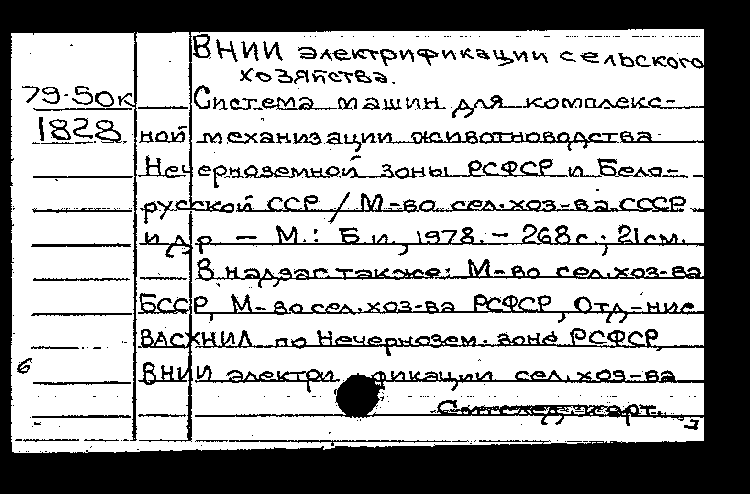 ВНИИ электрификации сельского
хозяйства.
79-50к Система машин для комплекс-
1828 ной механизации животноводства
Нечерноземной зоны РСФСР и Бело-
русской ССР / М-во сел. хоз-ва СССР
и др — М.: Б.и., 1978. — 268с.; 21см.
В надзаг также: М-во сел. хоз-ва
БССР, М-во сел. хоз-ва РСФСР, Отд-ние
ВАСХНИЛ по Нечернозем. зоне РСФСР,
6 ВНИИ электрификации сел. хоз-ва